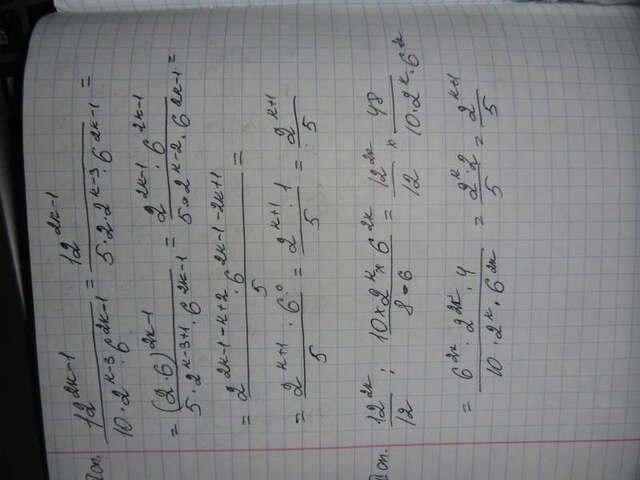 оп. 12^{2k-1} / (10·2^{k-3}·6^{2k-1}) = 12^{2k-1} / (5·2·2^{k-3}·6^{2k-1}) =
= (2·6)^{2k-1} / (5·2^{k-3+1}·6^{2k-1}) = 2^{2k-1}·6^{2k-1} / (5·2^{k-2}·6^{2k-1}) =
= 2^{2k-1-k+2}·6^{2k-1-2k+1} / 5 =
= 2^{k+1}·6^{0} / 5 = 2^{k+1}·1 / 5 = 2^{k+1} / 5
оп. 12^{2k} / 12 : (10×2^{k}×6^{2k}) / (8·6) = 12^{2k} / 12 × 48 / (10·2^{k}·6^{2k})
= 6^{2k}·2^{2k}·4 / (10·2^{k}·6^{2k}) = 2^{k}·2 / 5 = 2^{k+1} / 5